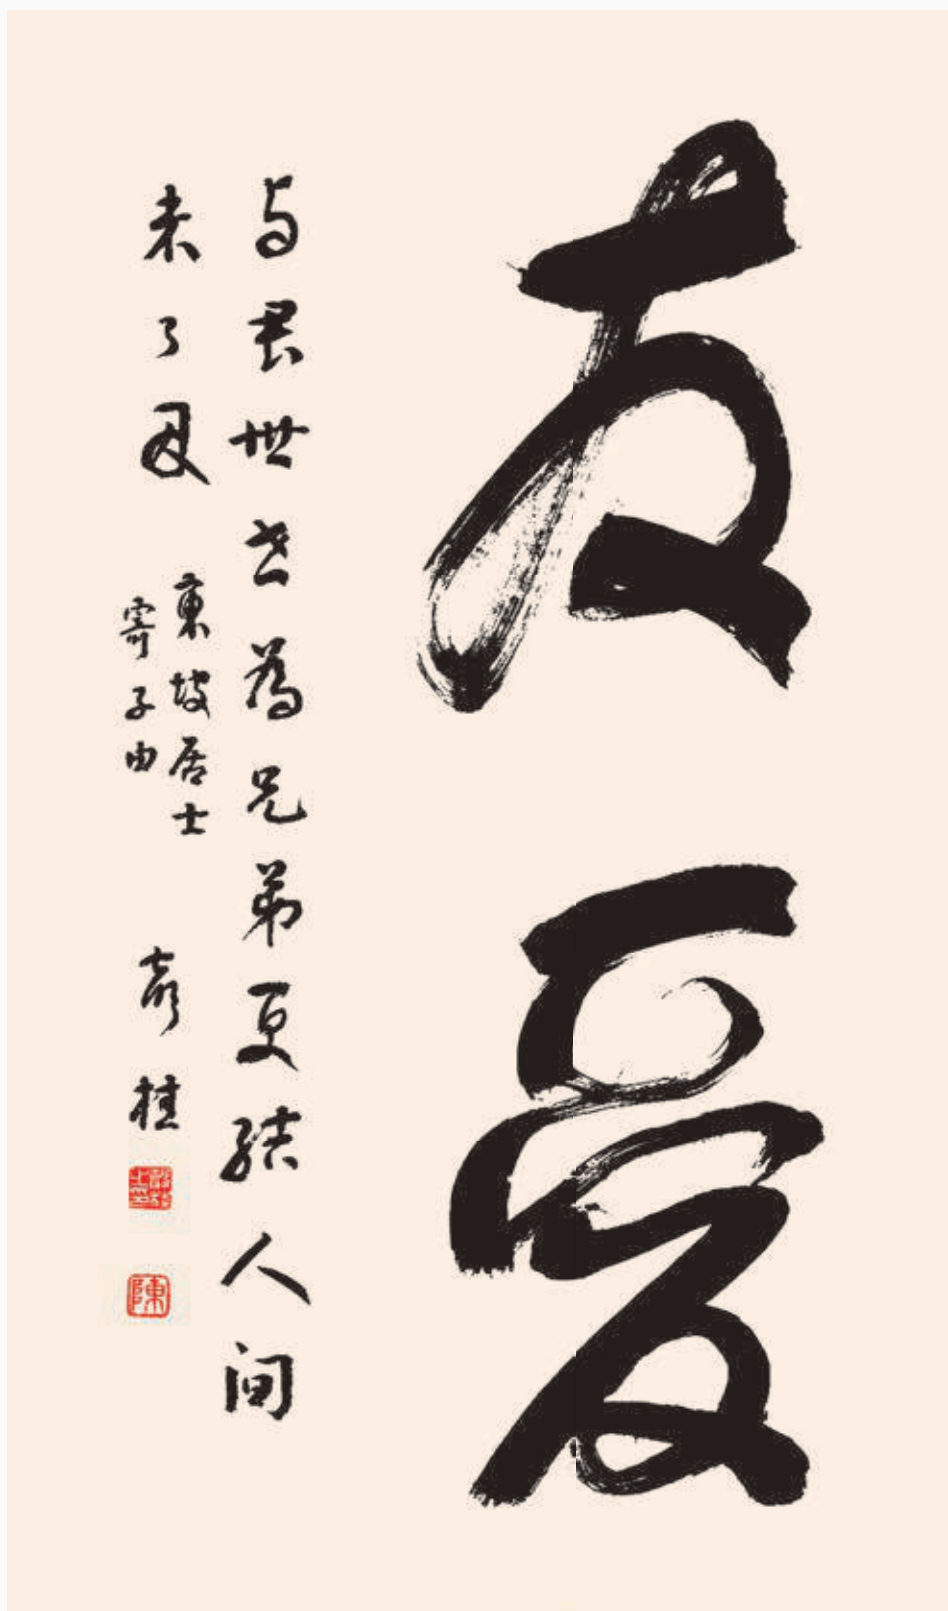 友爱
与君世世為兄弟更结人间
未了因
東坡居士
寄子由
彦桂
陳